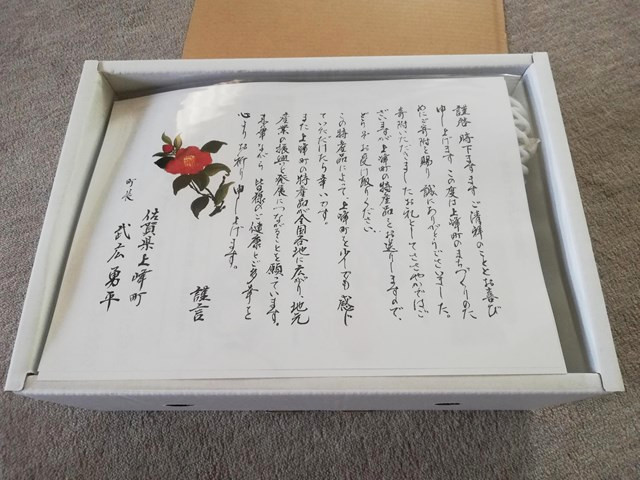 謹啓 時下ますますご清鮮のこととお喜び
申し上げます この度は上峰町のまちづくりのた
めにご寄附を賜り 誠にありがとうございました。
寄附いただきましたお礼としてささやかではご
ざいますが 上峰町の特産品をお送りしますので、
どうぞ お受け取りください。
この特産品によって上峰町を少しでも感じ
ていただけたら幸いです。
また上峰町の特産品が全国各地に広がり、地元
産業の振興と発展につながることを願っています。
末筆ながら 皆様のご健康とご多幸を
心よりお祈り申し上げます。
謹言
佐賀県上峰町
町長 武広勇平